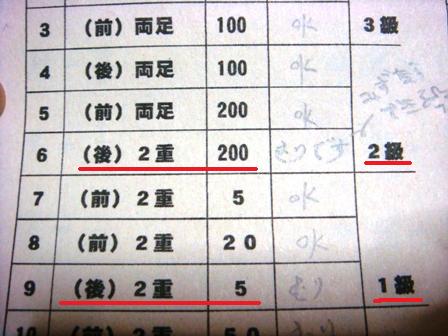 3 (前)両足 100 ok 3級
4 (後)両足 100 ok
5 (前)両足 200 ok
6 (後)2重 200 2級
7 (前)2重 5 ok
8 (前)2重 20 ok
9 (後)2重 5 むり 1級